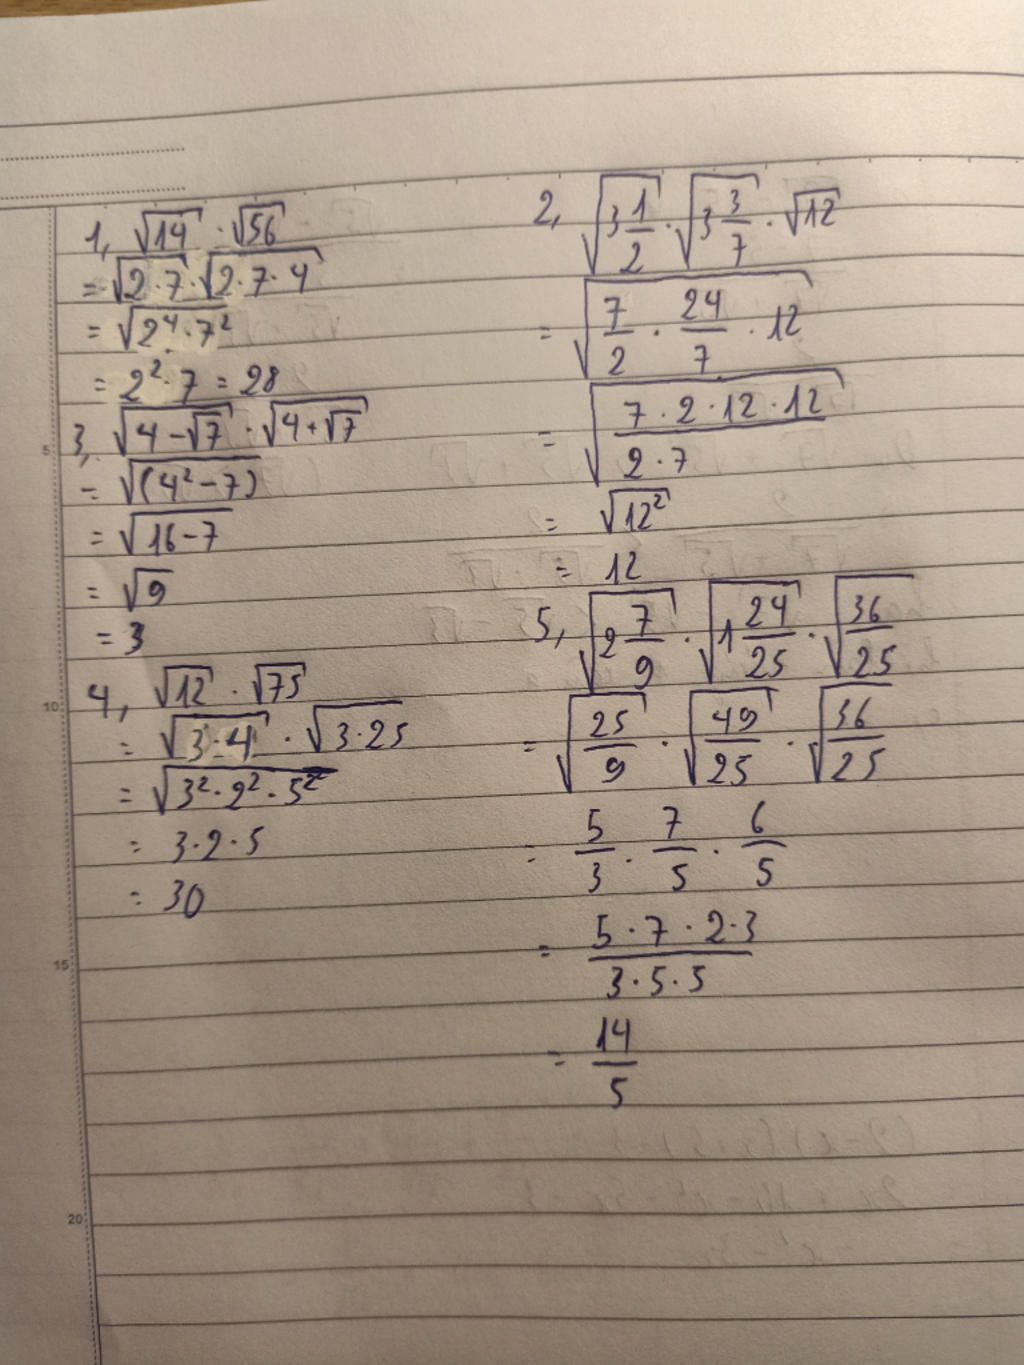 1, √14 · √56
= √2·7 · √2·7·4
= √2⁴·7²
= 2²·7 = 28
3, √4-√7 · √4+√7
= √(4²-7)
= √16-7
= √9
= 3
4, √12 · √75
= √3·4 · √3·25
= √3²·2²·5²
= 3·2·5
= 30
2, √3 1/2 · √3 3/7 · √12
= √7/2 · 24/7 · 12
= √7·2·12·12/2·7
= √12²
= 12
5, √2 7/9 · √1 24/25 · √36/25
= √25/9 · √49/25 · √36/25
= 5/3 · 7/5 · 6/5
= 5·7·2·3/3·5·5
= 14/5
5
10
15
20